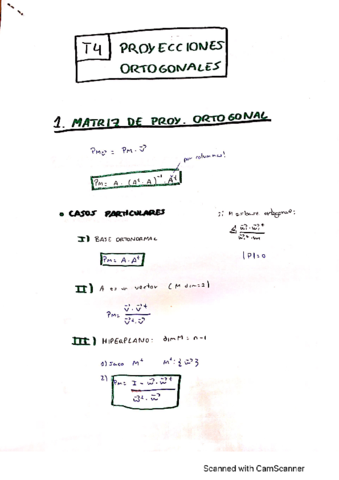 T4 PROYECCIONES
ORTOGONALES
1. MATRIZ DE PROY. ORTOGONAL
P_M v⃗ = P_M · v⃗
por columnas!
P_M = A · (Aᵗ · A)⁻¹ · Aᵗ
• CASOS PARTICULARES
I) BASE ORTONORMAL
P_M = A · Aᵗ
|P|=0
II) A es un vector (M dim=1)
P_M = v⃗ · v⃗ᵗ / v⃗ᵗ · v⃗
III) HIPERPLANO: dim M = n-1
1) Saco M⊥ M⊥: {w⃗}
2) P_M = I - w⃗ · w⃗ᵗ / w⃗ᵗ · w⃗
Scanned with CamScanner